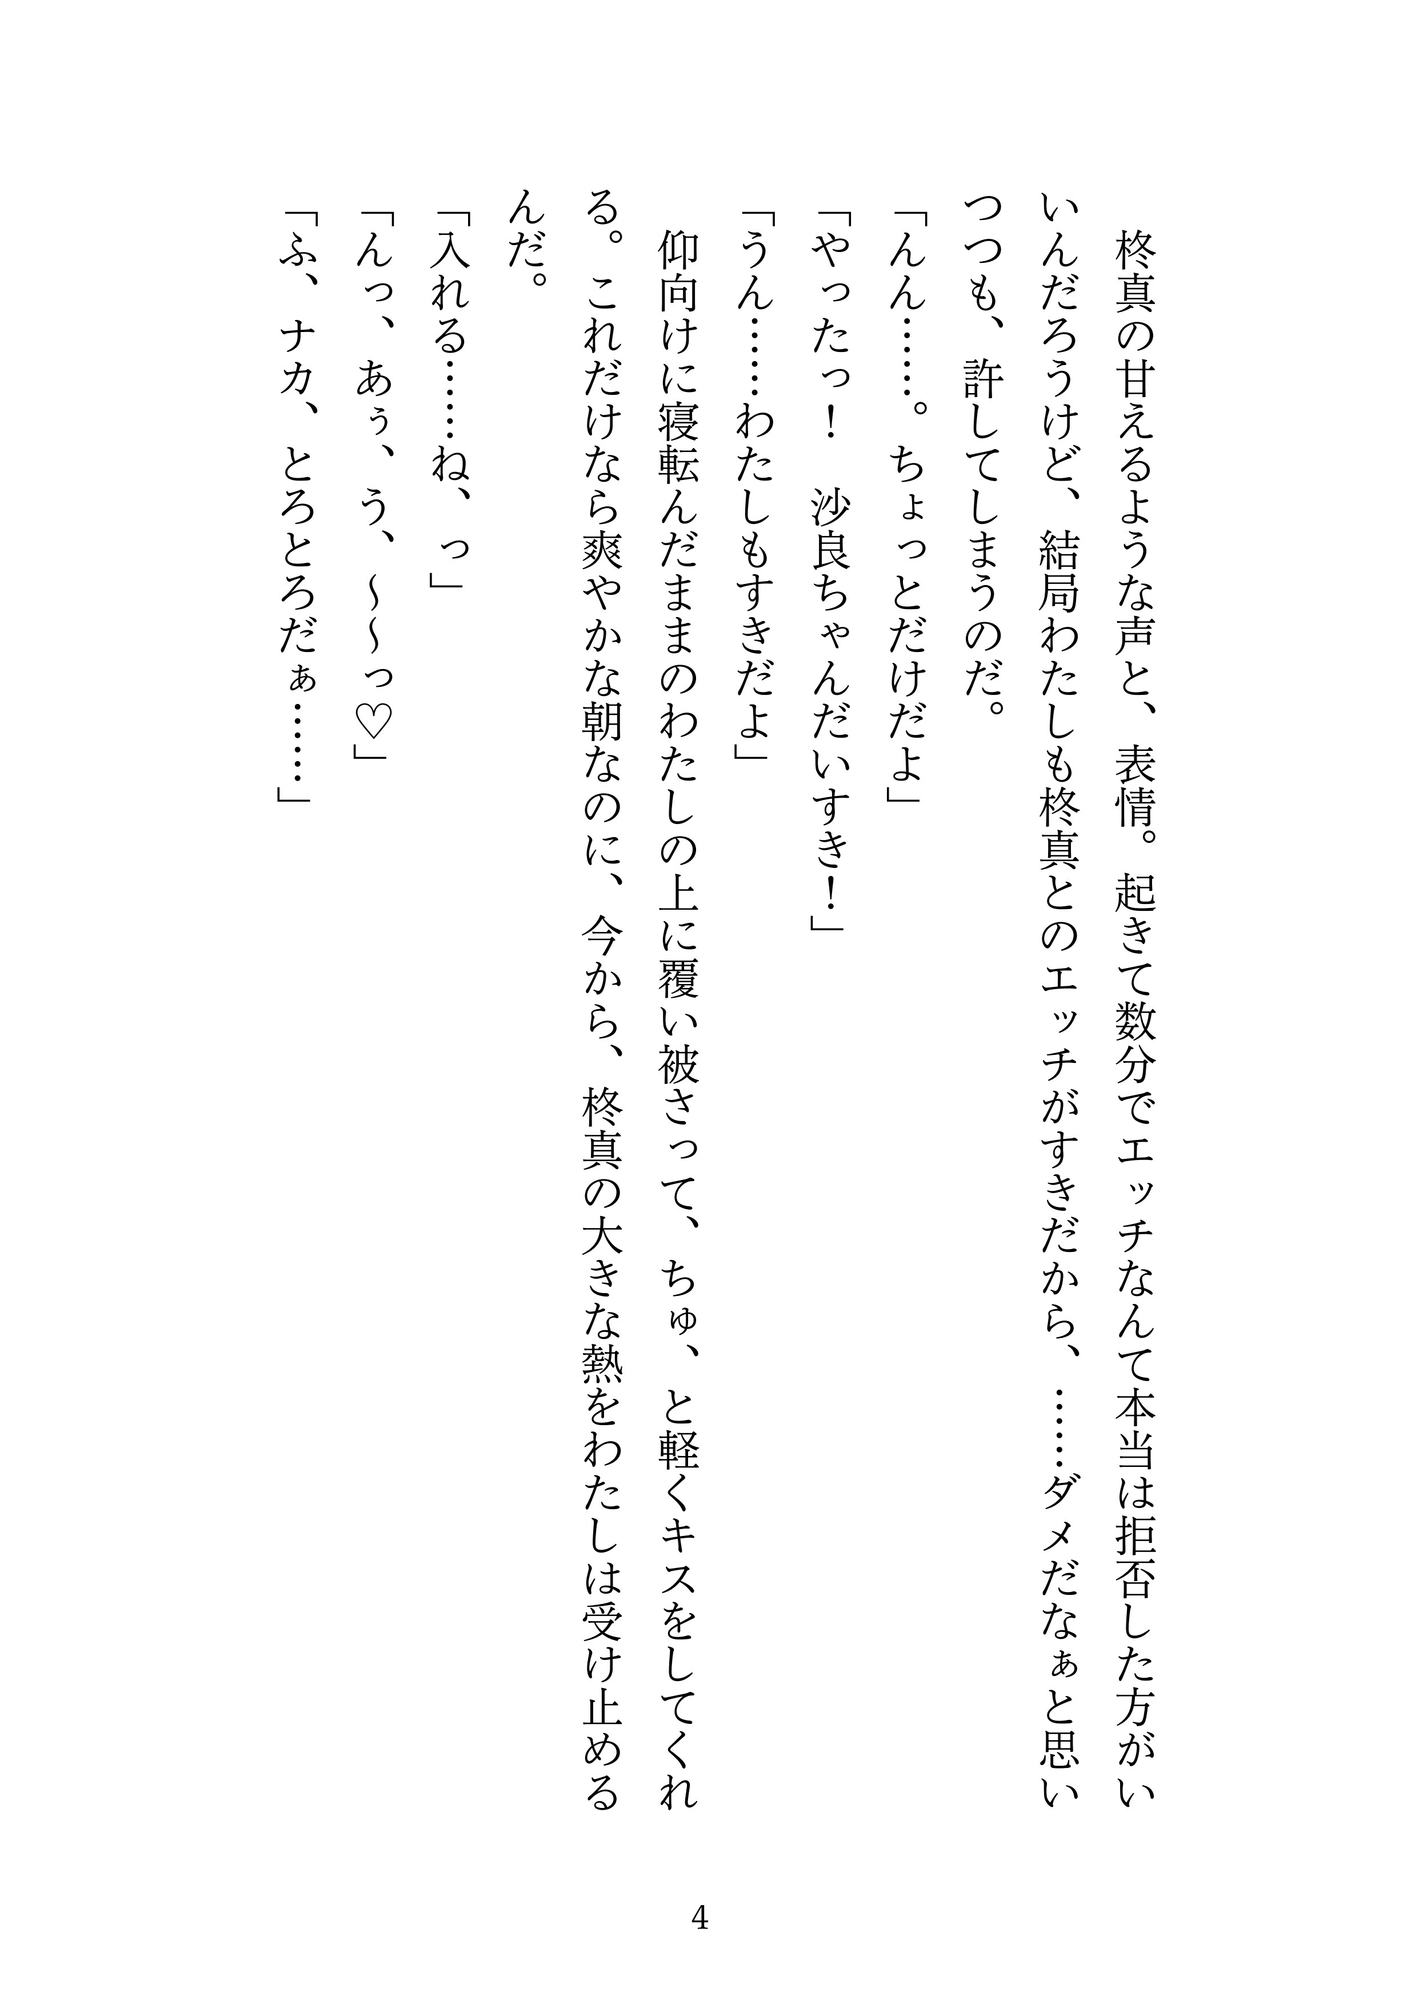 柊真の甘えるような声と、表情。起きて数分でエッチなんて本当は拒否した方がい
いんだろうけど、結局わたしも柊真とのエッチがすきだから、……ダメだなぁと思い
つつも、許してしまうのだ。
「んん……。ちょっとだけだよ」
「やったっ！　沙良ちゃんだいすき！」
「うん……わたしもすきだよ」
　仰向けに寝転んだままのわたしの上に覆い被さって、ちゅ、と軽くキスをしてくれ
る。これだけなら爽やかな朝なのに、今から、柊真の大きな熱をわたしは受け止める
んだ。
「入れる……ね、っ」
「んっ、あぅ、う、〜〜っ♡」
「ふ、ナカ、とろとろだぁ……」
4